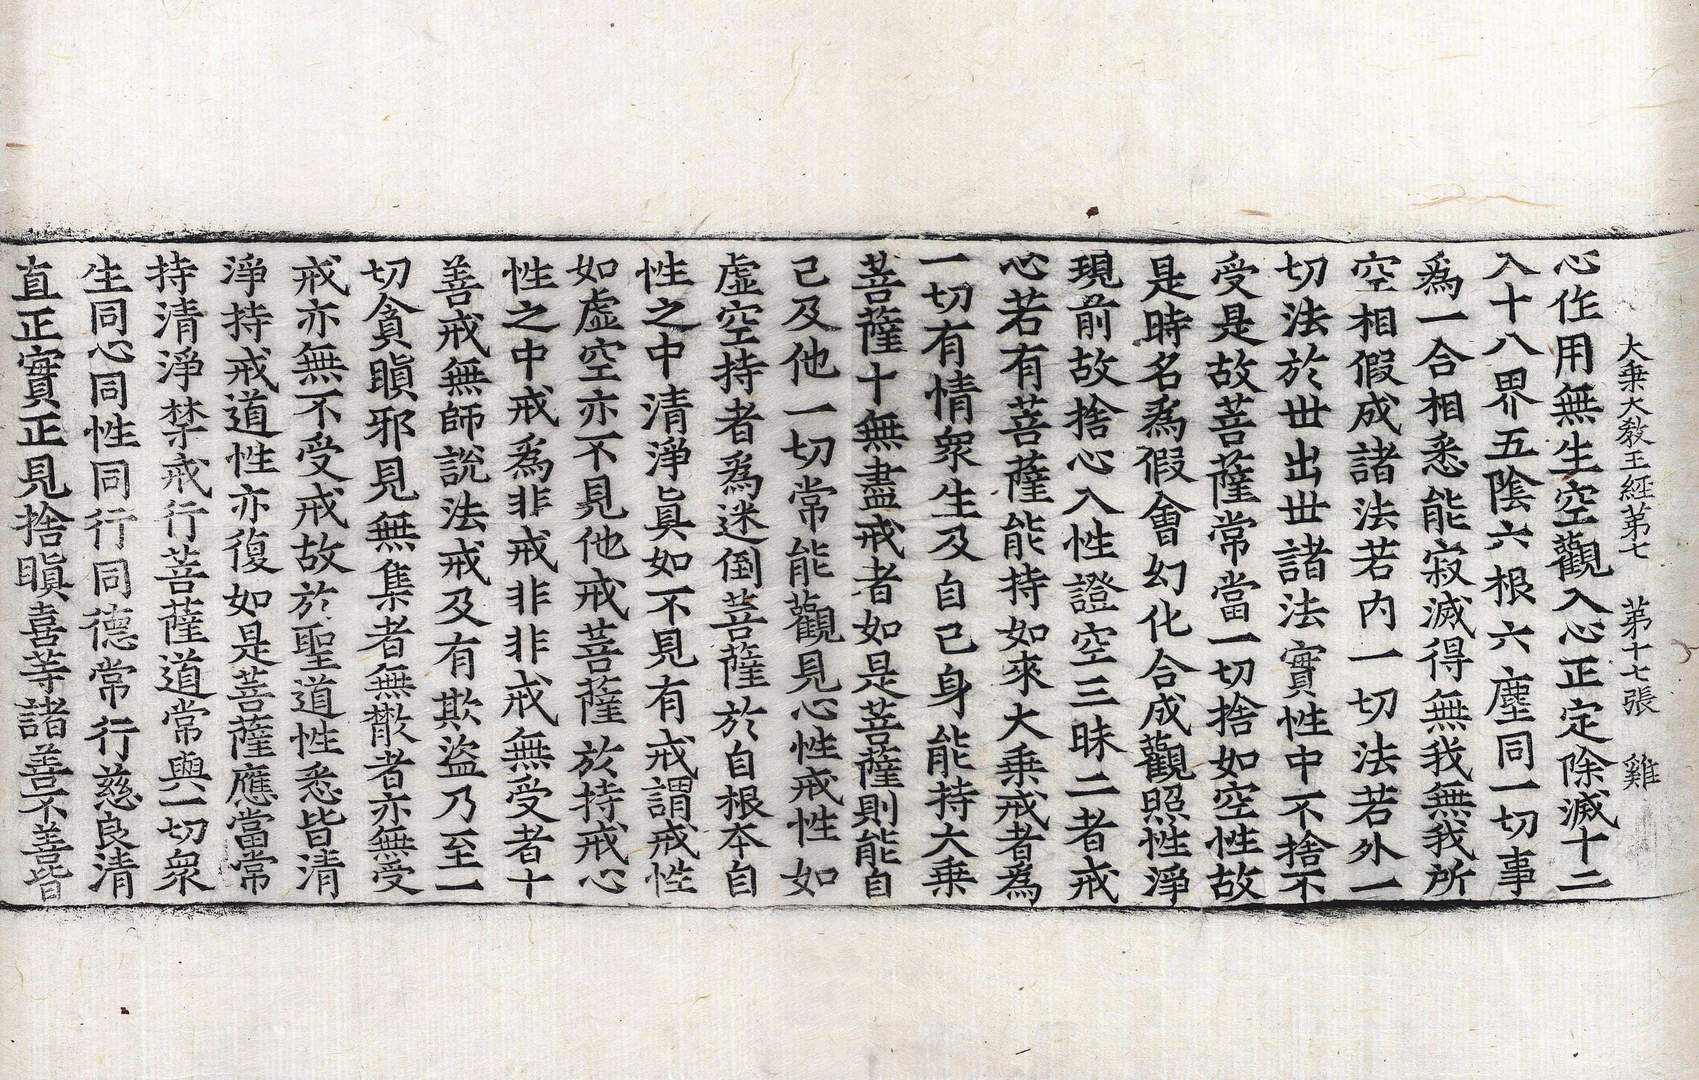 大乗大教王經第七　第十七張　雞
心作用無生空觀入心正定除滅十二
入十八界五陰六根六塵同一切事
爲一合相悉能寂滅得無我無我所
空相假成諸法若内一切法若外一
切法於世出世諸法實性中不捨不
受是故菩薩常當一切捨如空性故
是時名爲假會幻化合成觀照性淨
現前故捨心入性證空三昧二者戒
心若有菩薩能持如來大乗戒者爲
一切有情衆生及自己身能持大乗
菩薩十無盡戒者如是菩薩則能自
己及他一切常能觀見心性戒性如
虛空持者爲迷倒菩薩於自根本自
性之中清淨眞如不見有戒謂戒性
如虛空亦不見他戒菩薩於持戒心
性之中戒爲非戒非非戒無受者十
善戒無師說法戒及有欺盜乃至一
切貪瞋邪見無集者無散者亦無受
戒亦無不受戒故於聖道性悉皆清
淨持戒道性亦復如是菩薩應當常
持清淨禁戒行菩薩道常與一切衆
生同心同性同行同德常行慈良清
直正實正見捨瞋喜等諸善不善皆